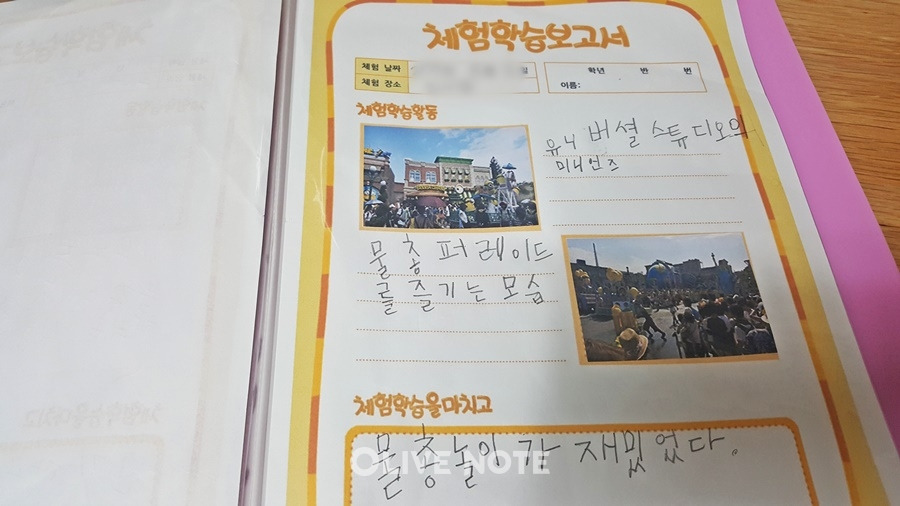 체험학습보고서
체험 날짜
일
체험 장소
학년 반 번
이름:
체험학습활동
유니버셜 스튜디오의
미니언즈
물총 퍼레이드
를 즐기는 모습
체험학습을마치고
물총놀이가 재밌었다.
OLIVE NOTE